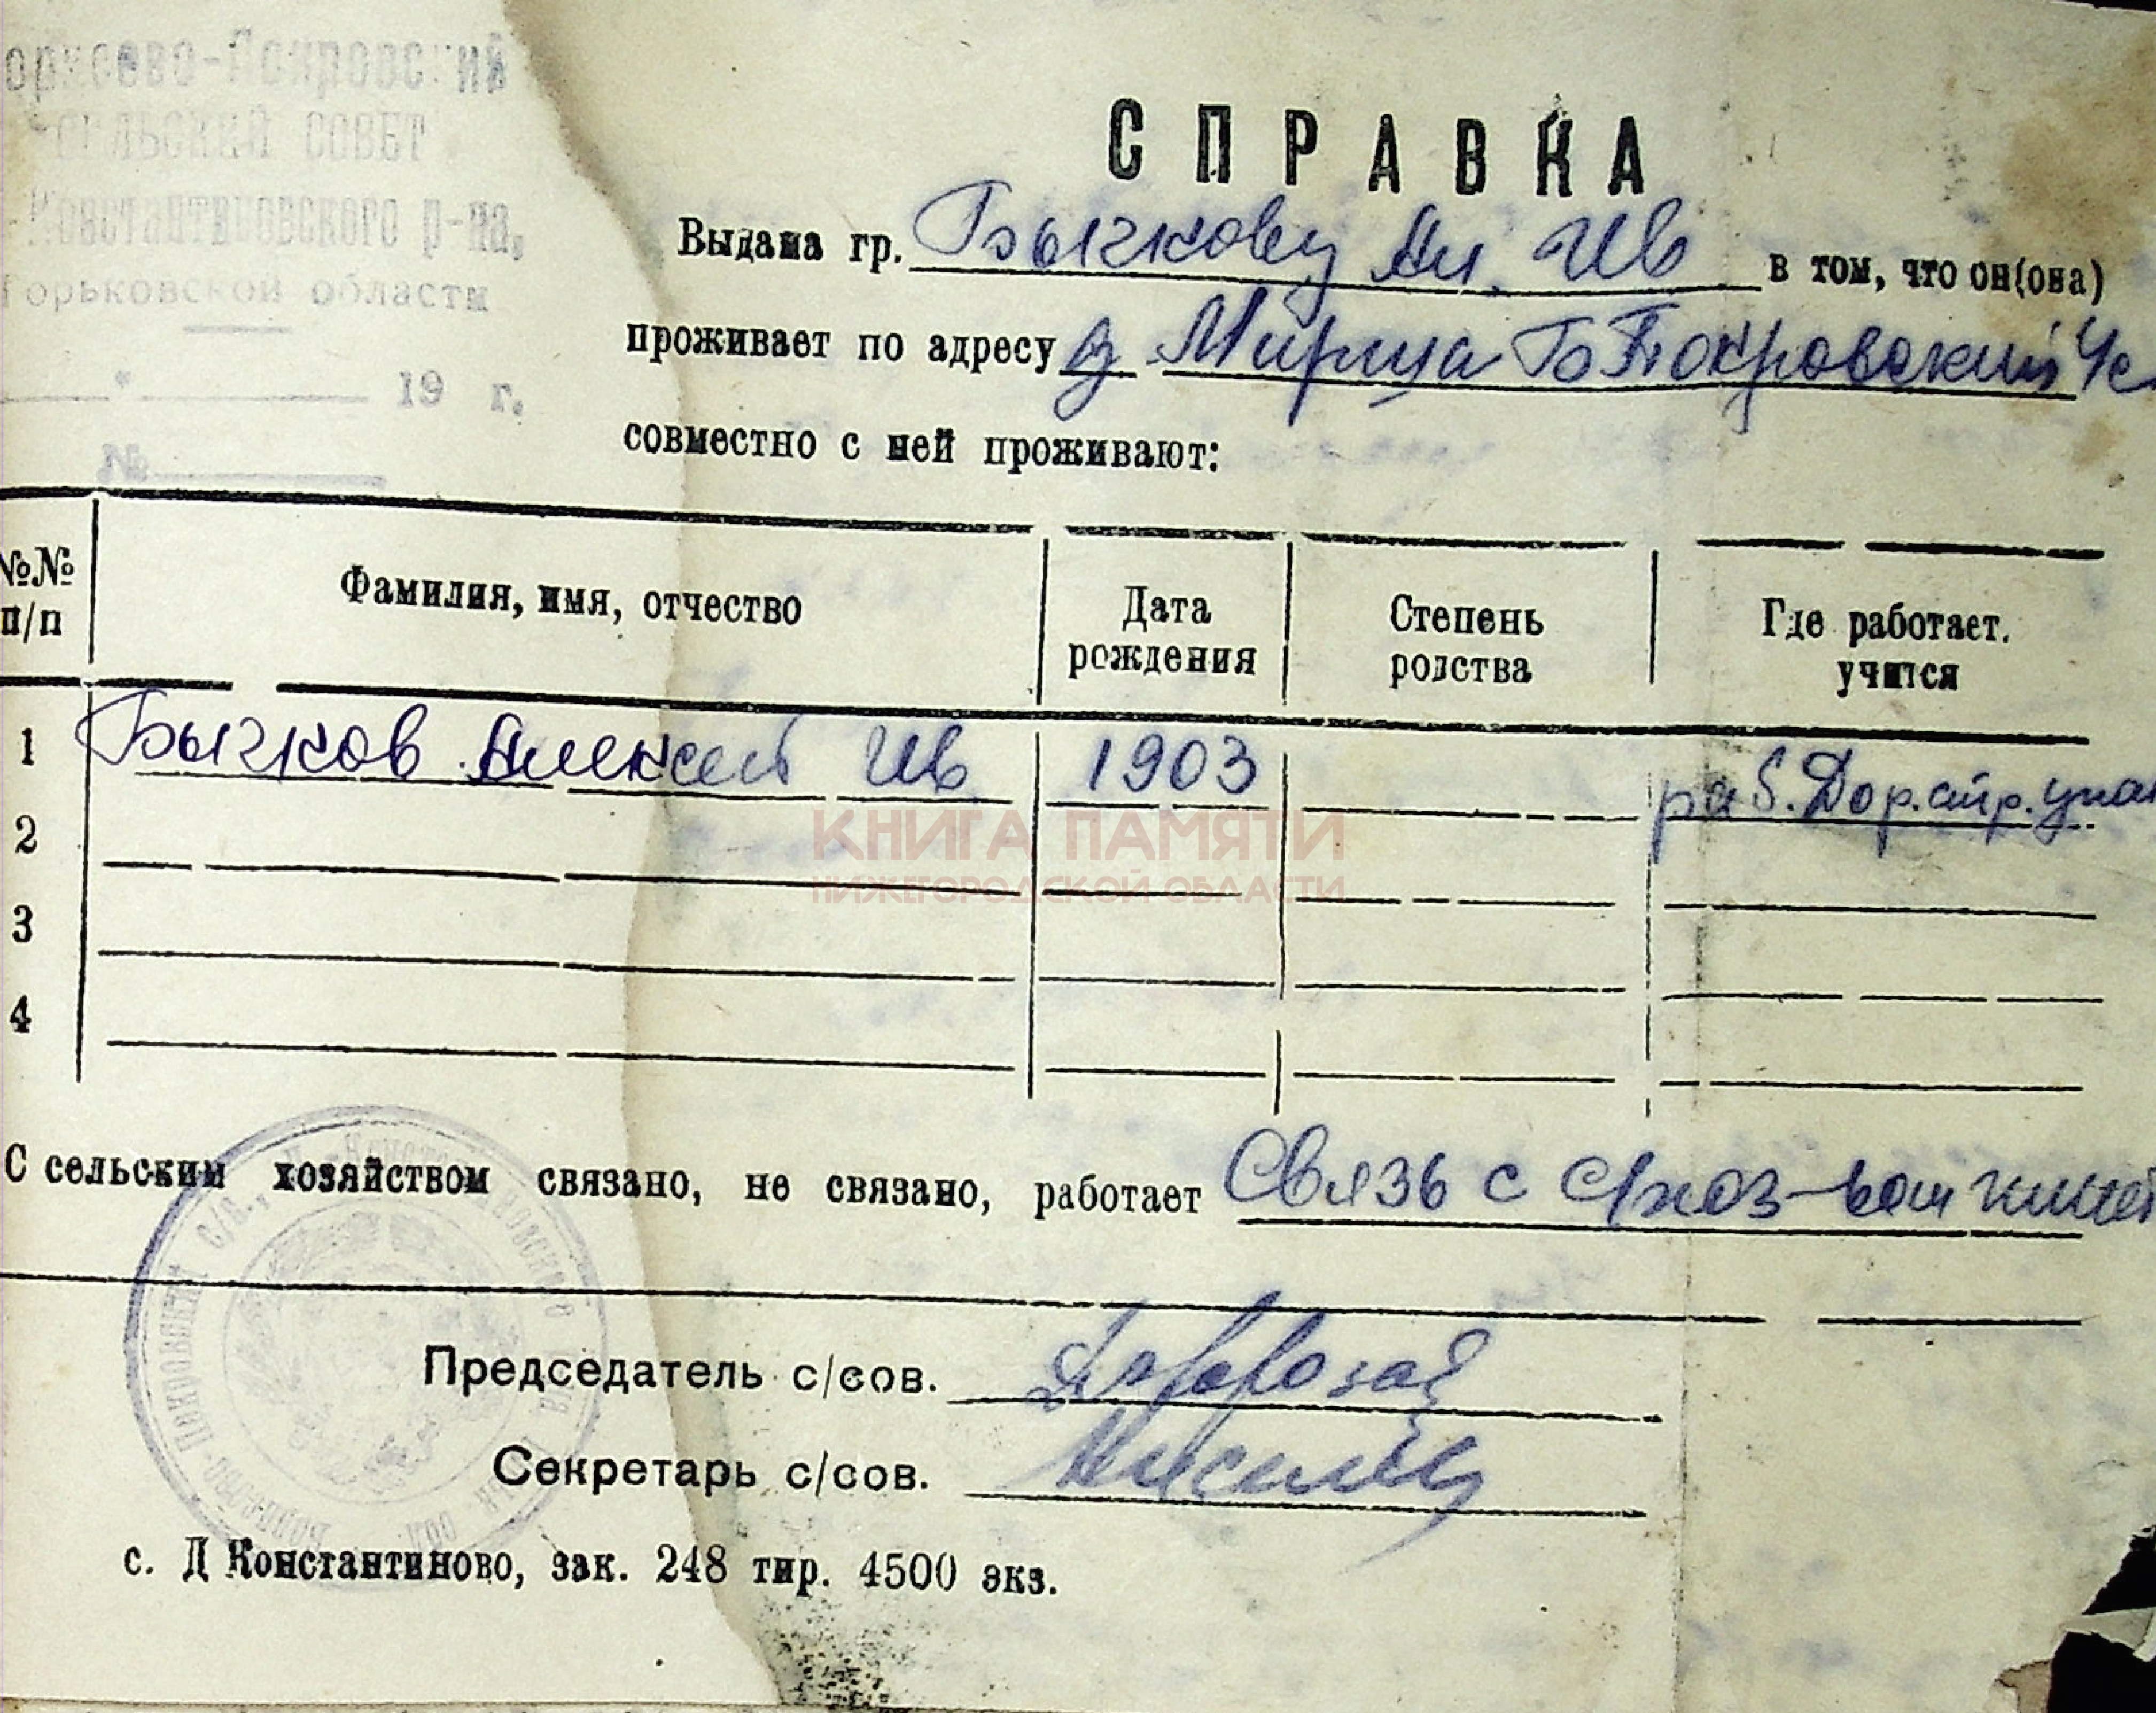 оркеево-Покровский
СЕЛЬСКИЙ СОВЕТ
-Константиновского р-на,
Горьковской области
19 г.
№
СПРАВКА
Выдана гр. Бычкову Ал. Ив в том, что он(она)
проживает по адресу д Мирица Б Покровский
совместно с ней проживают:
№№ п/п Фамилия, имя, отчество Дата рождения Степень родства Где работает. учится
1 Бычков Алексей Ив 1903 раб. Дор. стр.
2
КНИГА ПАМЯТИ
НИЖЕГОРОДСКОЙ ОБЛАСТИ
3
4
С сельским хозяйством связано, не связано, работает Связь с с/хоз-вом
Председатель с/сов.
Секретарь с/сов.
с. Д Константиново, зак. 248 тир. 4500 экз.